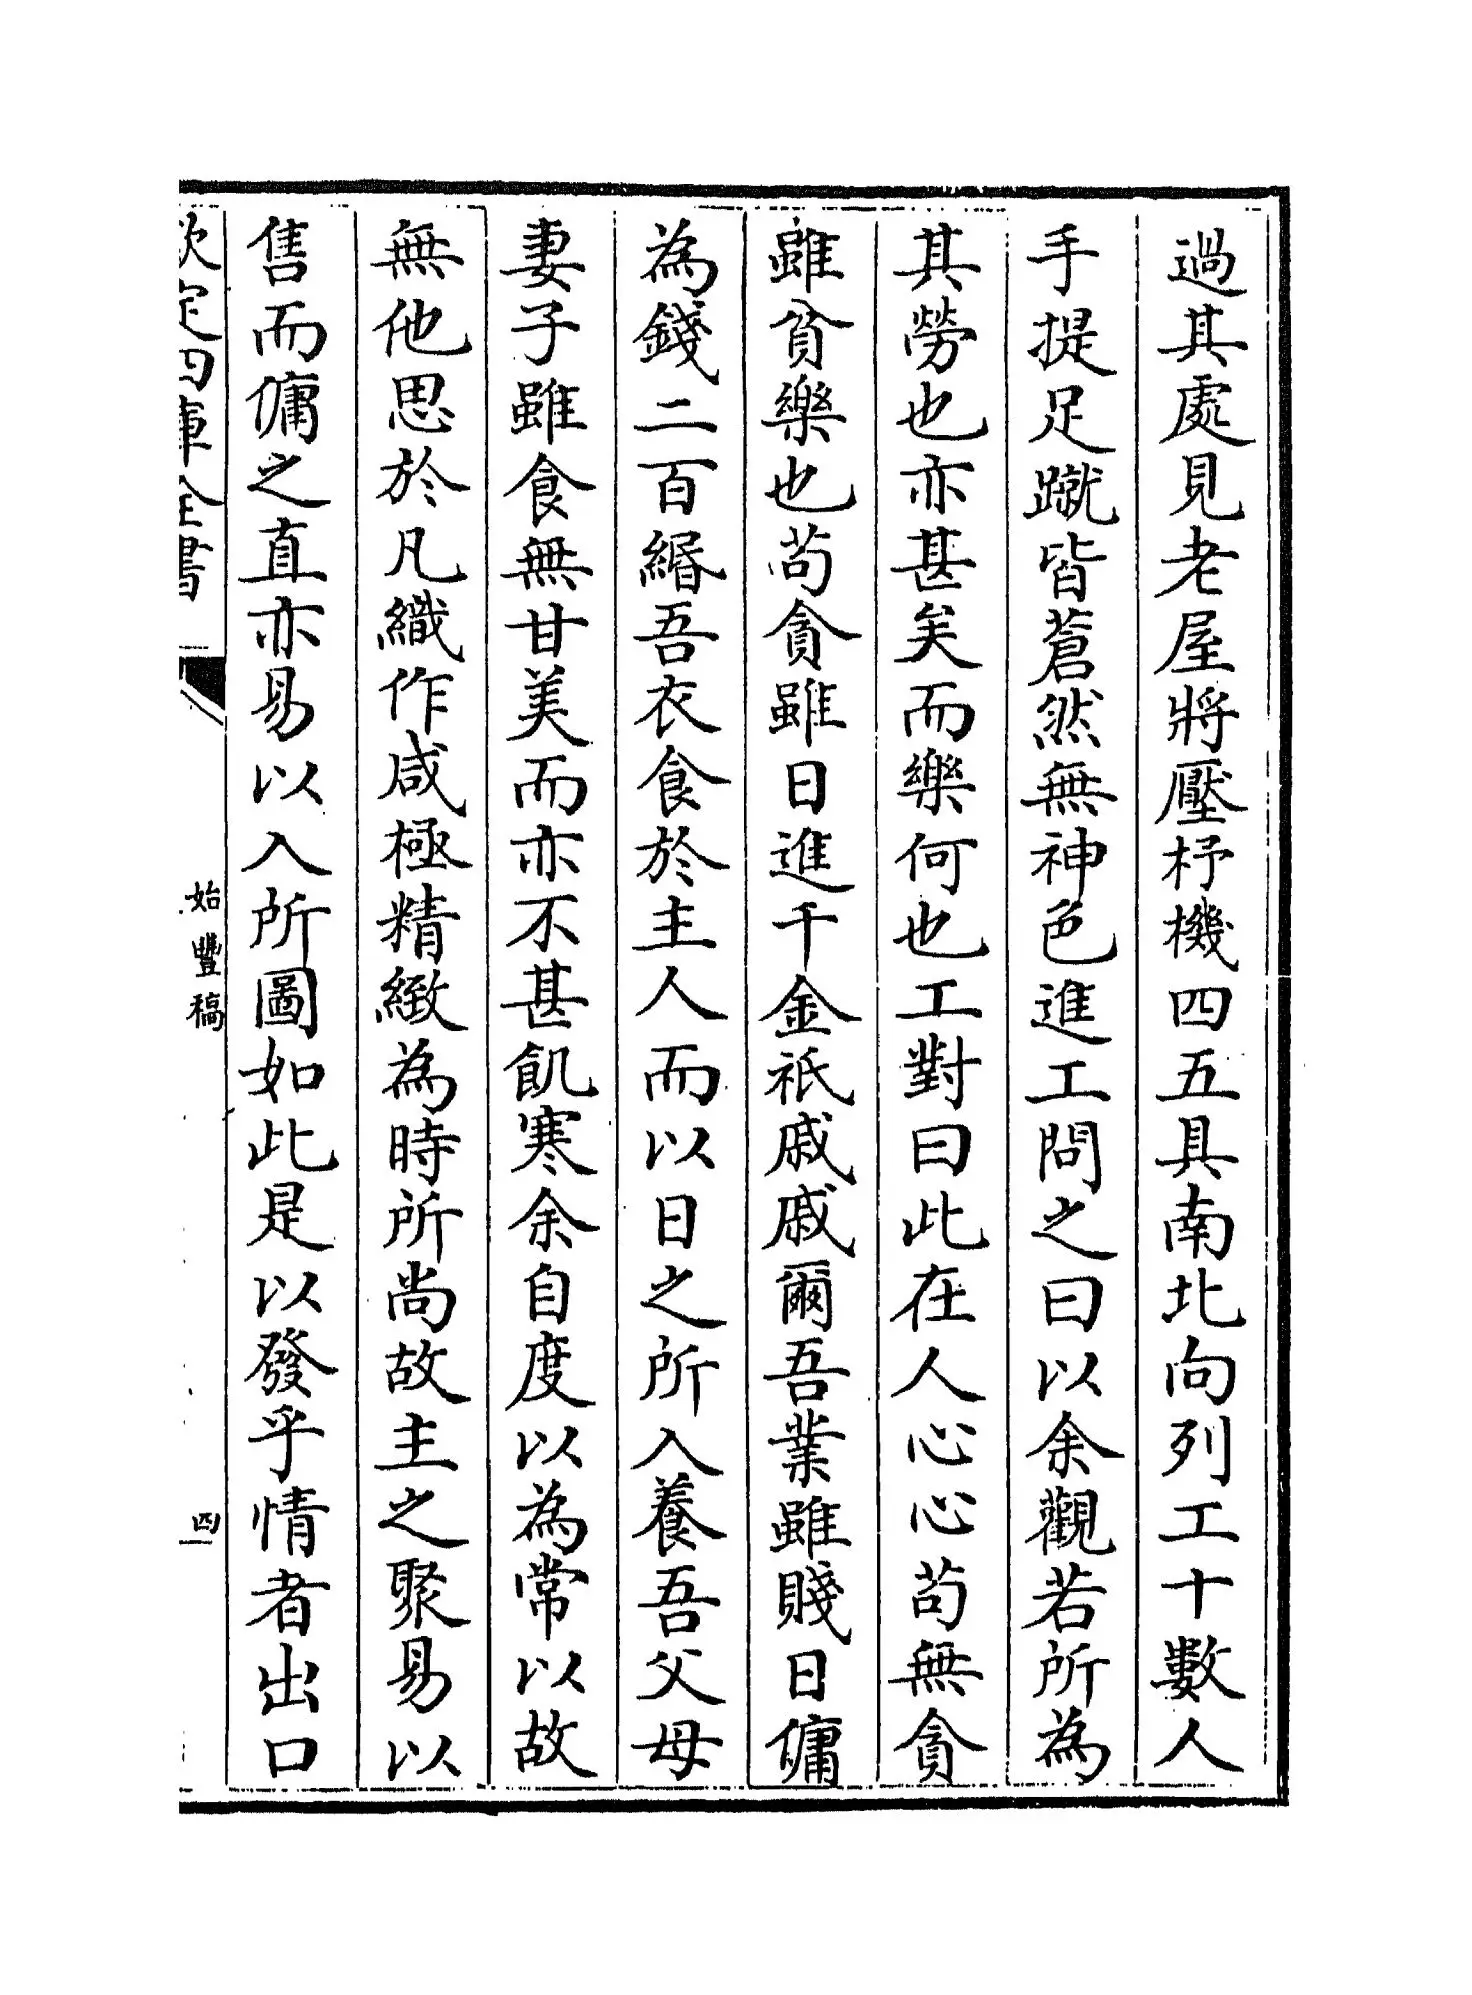 過其處見老屋將壓杼機四五具南北向列工十數人
手提足蹴皆蒼然無神色進工問之曰以余觀若所為
其勞也亦甚矣而樂何也工對曰此在人心心苟無貪
雖貧樂也苟貪雖日進千金祇戚戚爾吾業雖賤日傭
為錢二百緡吾衣食於主人而以日之所入養吾父母
妻子雖食無甘美而亦不甚飢寒余自度以為常以故
無他思於凡織作咸極精緻為時所尚故主之聚易以
售而傭之直亦易以入所圖如此是以發乎情者出口
欽定四庫全書
始豐稿
四